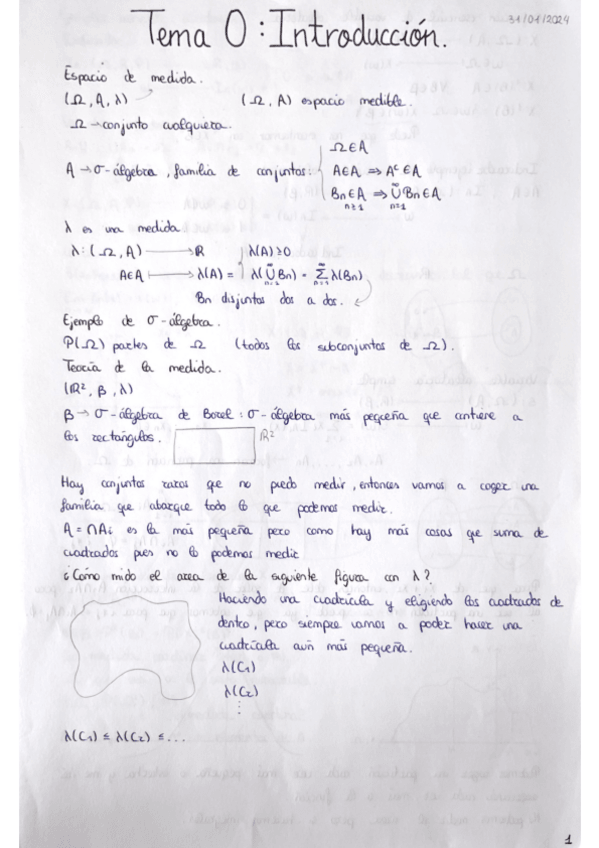 31/01/2024
Tema 0: Introducción.
Espacio de medida.
(Ω, A, λ) (Ω, A) espacio medible.
Ω → conjunto cualquiera.
A → σ-álgebra, familia de conjuntos:
Ω∈A
A∈A ⇒ Aᶜ∈A
Bn∈A n≥1 ⇒ ∪ n=1 ∞ Bn∈A
λ es una medida
λ: (Ω, A) → ℝ λ(A)≥0
A∈A ↦ λ(A) = λ(∪ n=1 ∞ Bn) = Σ n=1 ∞ λ(Bn)
Bn disjuntos dos a dos.
Ejemplo de σ-álgebra.
P(Ω) partes de Ω (todos los subconjuntos de Ω).
Teoría de la medida.
(ℝ², β, λ)
β → σ-álgebra de Borel: σ-álgebra más pequeña que contiene a
los rectángulos. ℝ²
Hay conjuntos raros que no puedo medir, entonces vamos a coger una
familia que abarque todo lo que podemos medir.
A = ∩Ai es la más pequeña pero como hay más cosas que suma de
cuadrados pues no lo podemos medir
¿Cómo mido el area de la siguiente figura con λ?
Haciendo una cuadrícula y eligiendo los cuadrados de
dentro, pero siempre vamos a poder hacer una
cuadrícula aún más pequeña.
λ(C₁)
λ(C₂)
⋮
λ(C₁) ≤ λ(C₂) ≤ ...
1